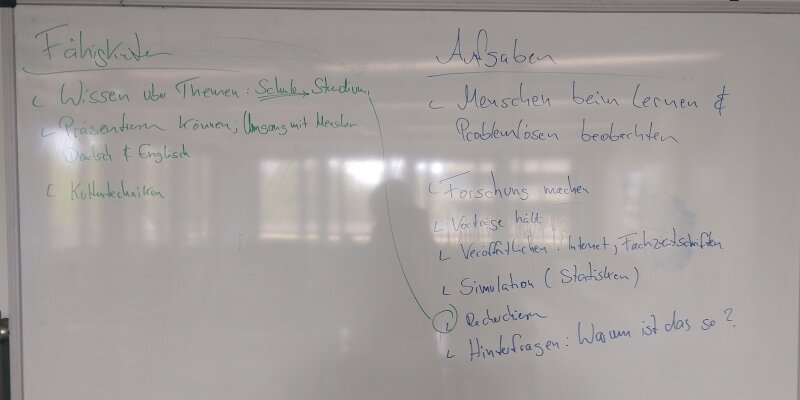 Fähigkeiten
Wissen über Themen: Schule, Studium,
Präsentieren können; Umgang mit Menschen
Deutsch & Englisch
Kulturtechniken
Aufgaben
Menschen beim Lernen &
Problemlösen beobachten
Forschung machen
Vorträge hält
Veröffentlichen: Internet, Fachzeitschriften
Simulation (Statistiken)
Recherchieren
Hinterfragen: Warum ist das so?